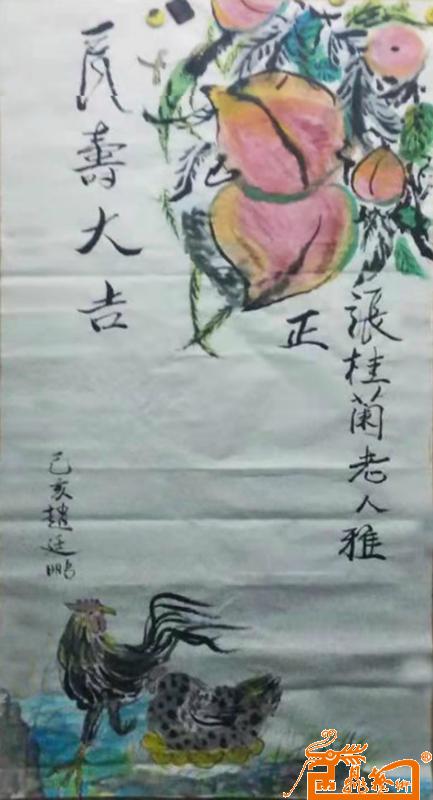 張桂蘭老人雅
正
長壽大吉
己亥趙廷鵬